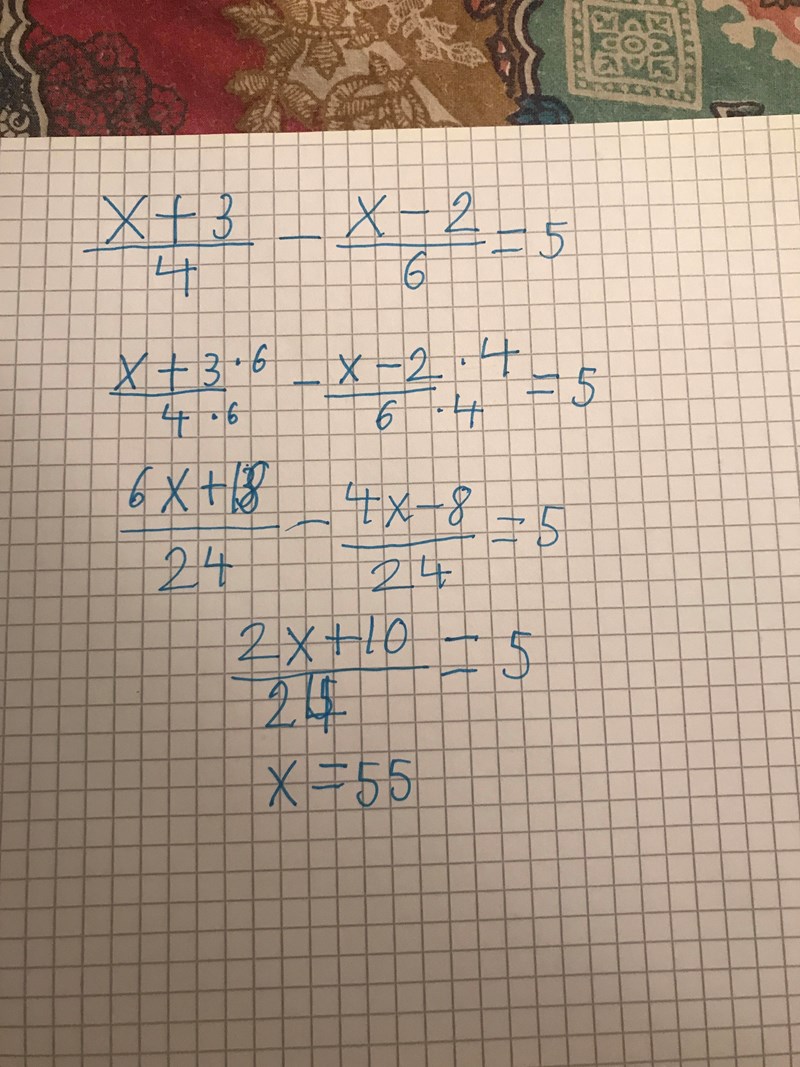 x+3/4 - x-2/6 = 5
x+3·6/4·6 - x-2·4/6·4 = 5
6x+18/24 - 4x-8/24 = 5
2x+10/24 = 5
x=55